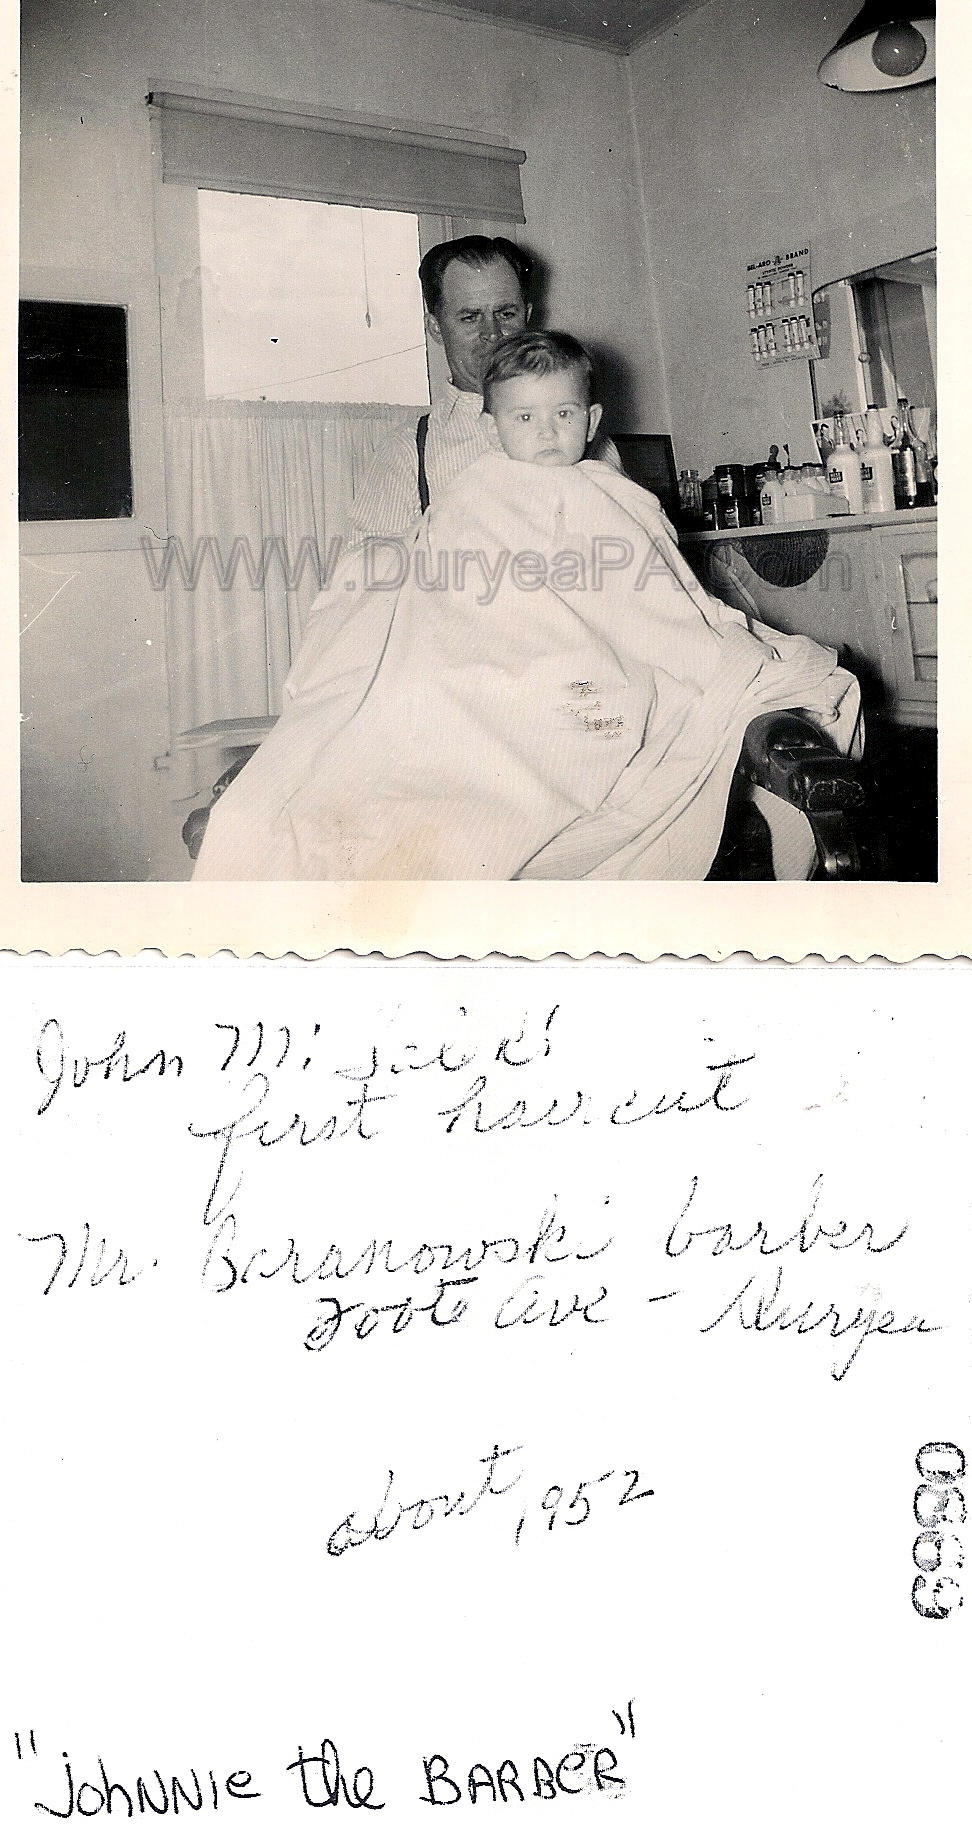 BEL-ARO BRAND
STYPTIC POWDER
WWW.DuryeaPA.Com
John M.
first haircut
Mr. Baranowski barber
Foote Ave - Duryea
about 1952
08869
"JohNNie the BARBeR"